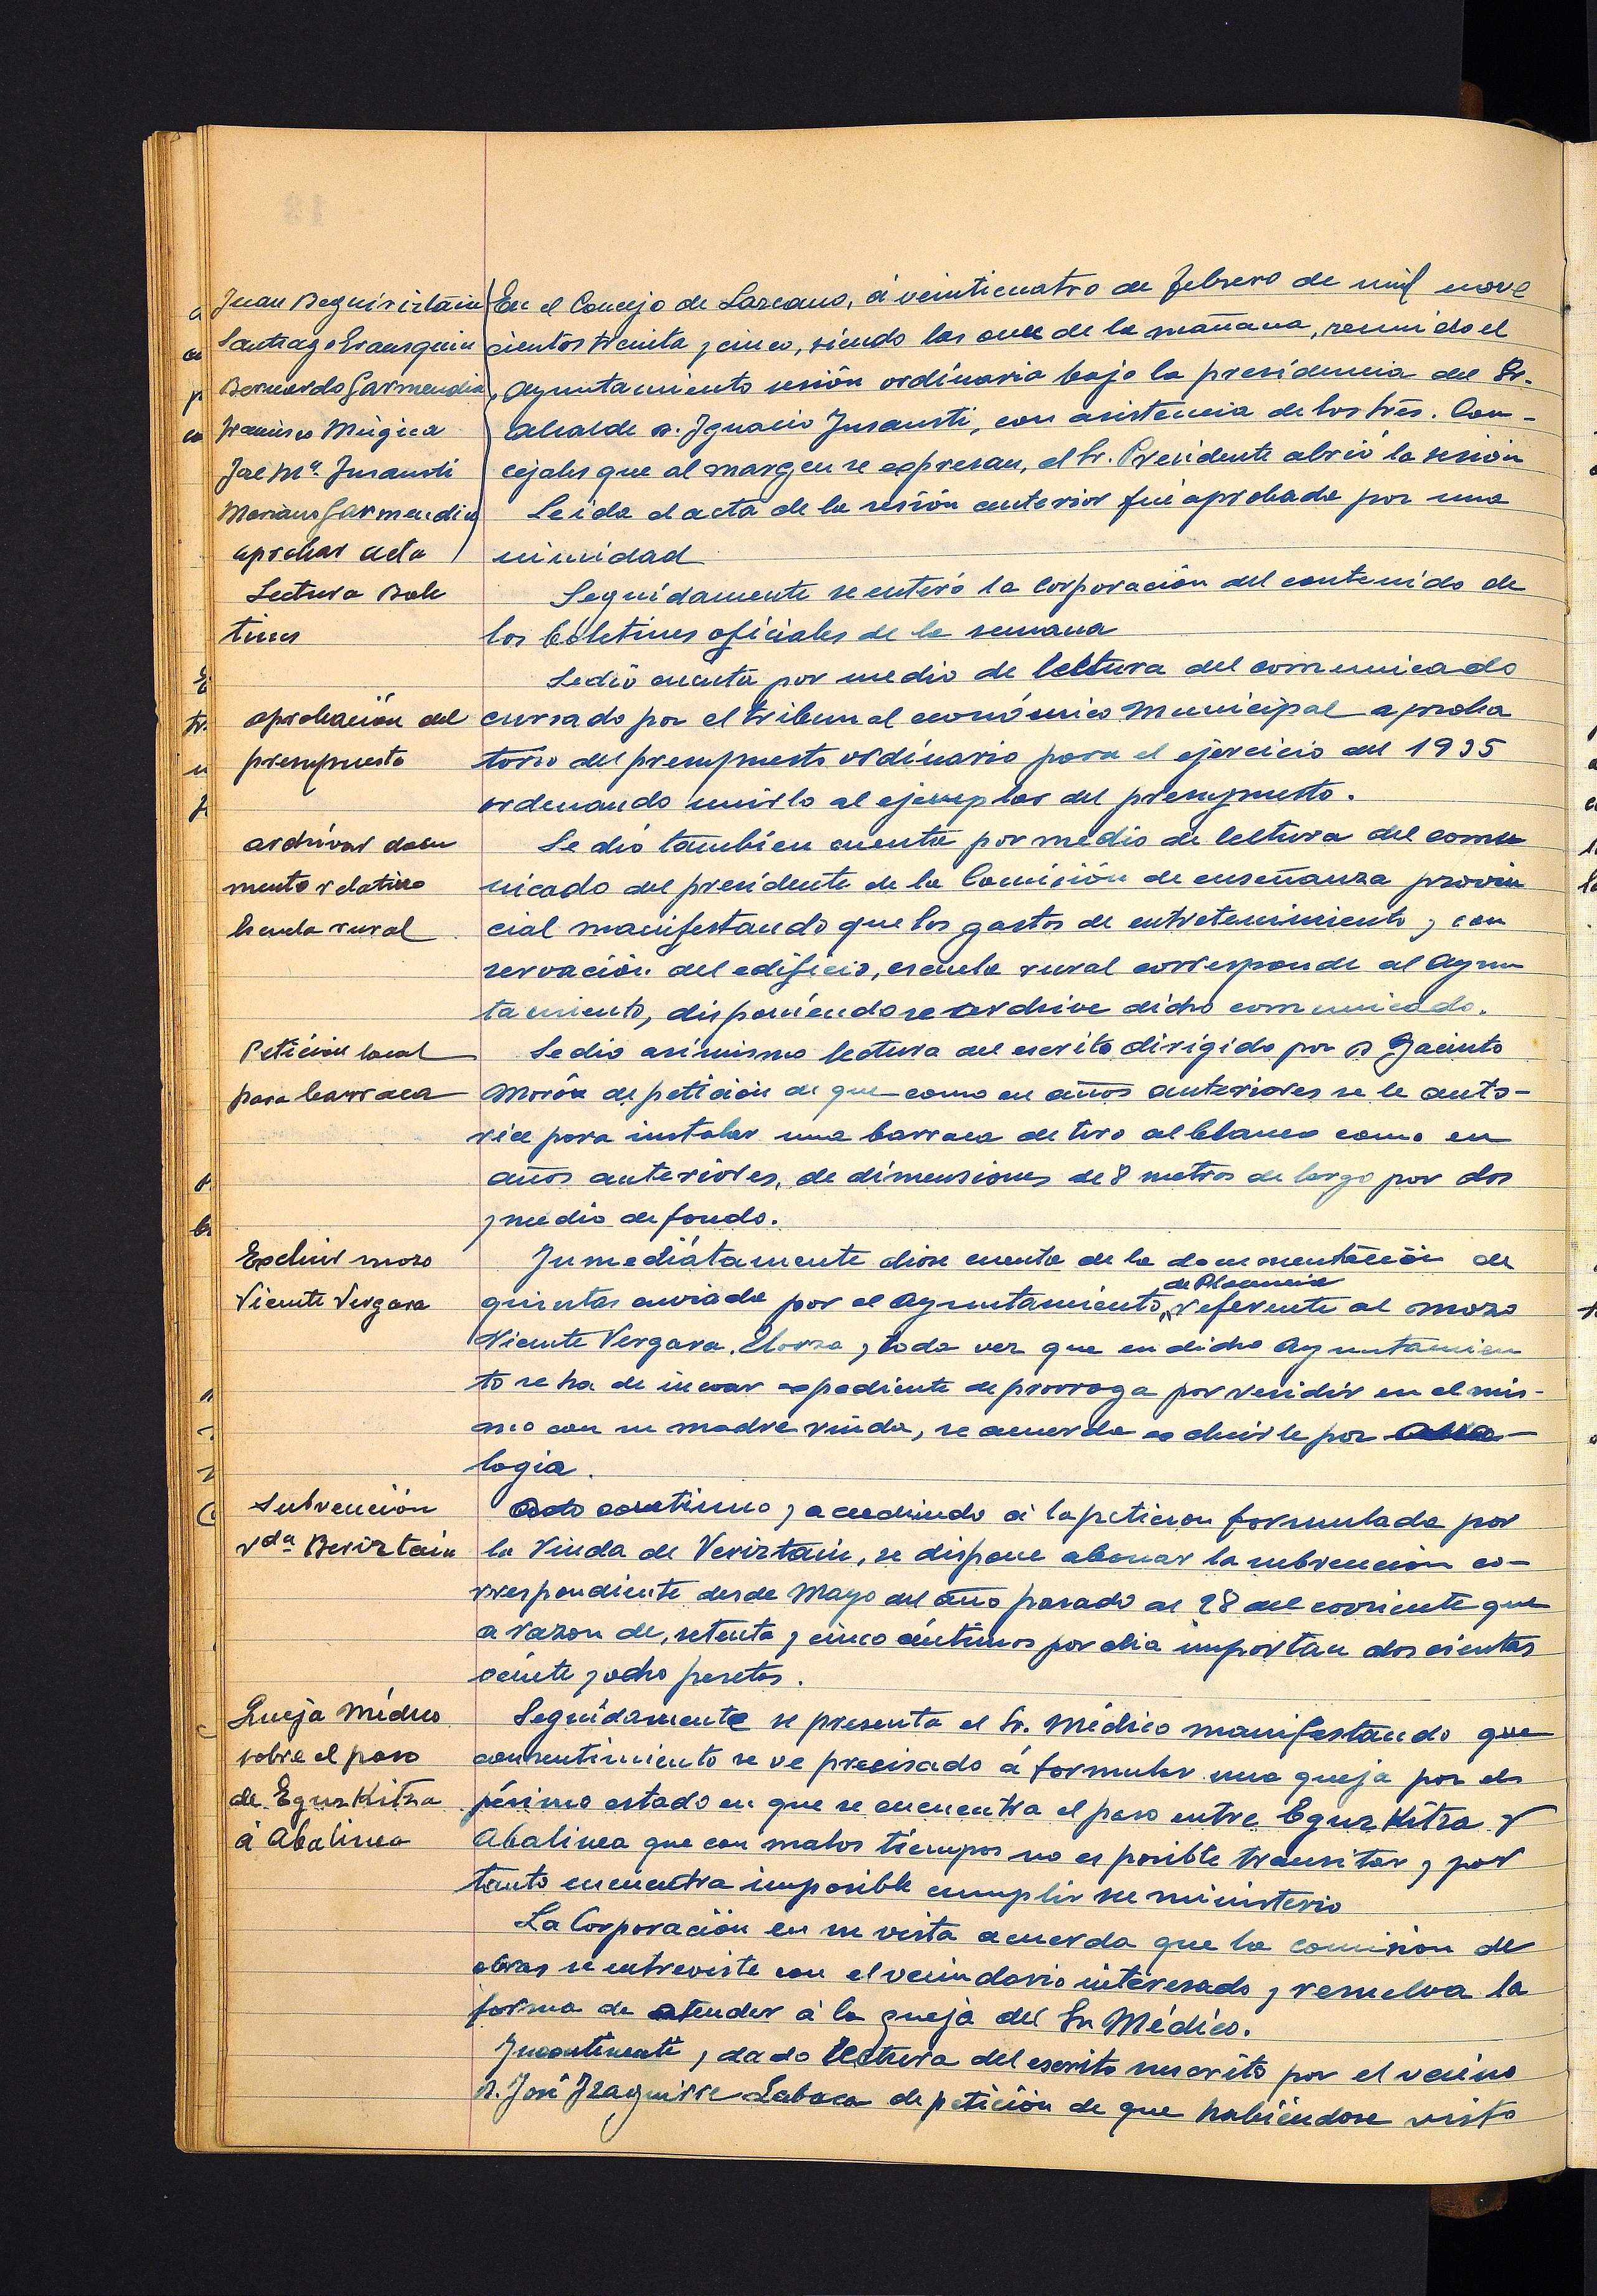 Juan Beguiristain
Santiago Erausquin
Bernardo Garmendia
Francisco Múgica
José Mª. Insausti
Mariano Garmendia
aprobar acta
En el Concejo de Lazcano, á veinticuatro de febrero de mil nove
cientos treinta y cinco, siendo las once de la mañana, reunido el
Ayuntamiento sesión ordinaria bajo la presidencia del Sr.
Alcalde D. Ignacio Insausti, con asistencia de los Sres. Con-
cejales que al margen se expresan, el Sr. Presidente abrió la sesión
Leida el acta de la sesión anterior fué aprobada por una
nimidad
Lectura Bole
tines
Seguidamente se enteró la Corporación del contenido de
los boletines oficiales de la semana
aprobación del
presupuesto
Se dió cuenta por medio de lectura del comunicado
cursado por el tribunal económico Municipal aproba
torio del presupuesto ordinario para el ejercicio del 1935
ordenando unirlo al ejemplar del presupuesto.
archivar docu
mento relativo
Escuela rural
Se dió también cuenta por medio de lectura del comu
nicado del presidente de la Comisión de enseñanza provin
cial manifestando que los gastos de entretenimiento y con
servación del edificio, escuela rural corresponde al Ayun
tamiento, disponiendose archive dicho comunicado.
Petición local
para barraca
Se dió asimismo lectura del escrito dirigido por D Jacinto
Morón de petición de que como en años anteriores se le auto-
rice para instalar una barraca de tiro al blanco como en
años anteriores, de dimensiones de 8 metros de largo por dos
y medio de fondo.
Excluir mozo
Vicente Vergara
Inmediátamente dióse cuenta de la documentación de
quintas enviada por el Ayuntamiento, de Placencia referente al mozo
Vicente Vergara Elorza y toda vez que en dicho Ayuntamien
to se ha de incoar expediente de prorroga por residir en el mis-
mo con su madre viuda, se acuerda excluirle por
logia.
Subvención
Vda Beriztain
Acto continuo y accediendo á la peticion formulada por
la Viuda de Veriztain, se dispone abonar la subvención co-
rrespondiente desde Mayo del año pasado al 28 del corriente que
a razon de, setenta y cinco céntimos por dia importan doscientas
veinte y ocho pesetas.
Queja Médico
sobre el paso
de Eguzkitza
á Abalinea
Seguidamente se presenta el Sr. Médico manifestando que
con sentimiento se ve precisado á formular una queja por el
pésimo estado en que se encuentra el paso entre Eguzkitza y
Abalinea que con malos tiempos no es posible transitar y por
tanto encuentra imposible cumplir su ministerio
La Corporación en su vista acuerda que la comision de
obras se entreviste con el vecindario interesado y resuelva la
forma de atender á la queja del Sr Médico.
Incontinenti, dado lectura del escrito suscrito por el vecino
D. José Izaguirre Labaca de petición de que habiéndose visto